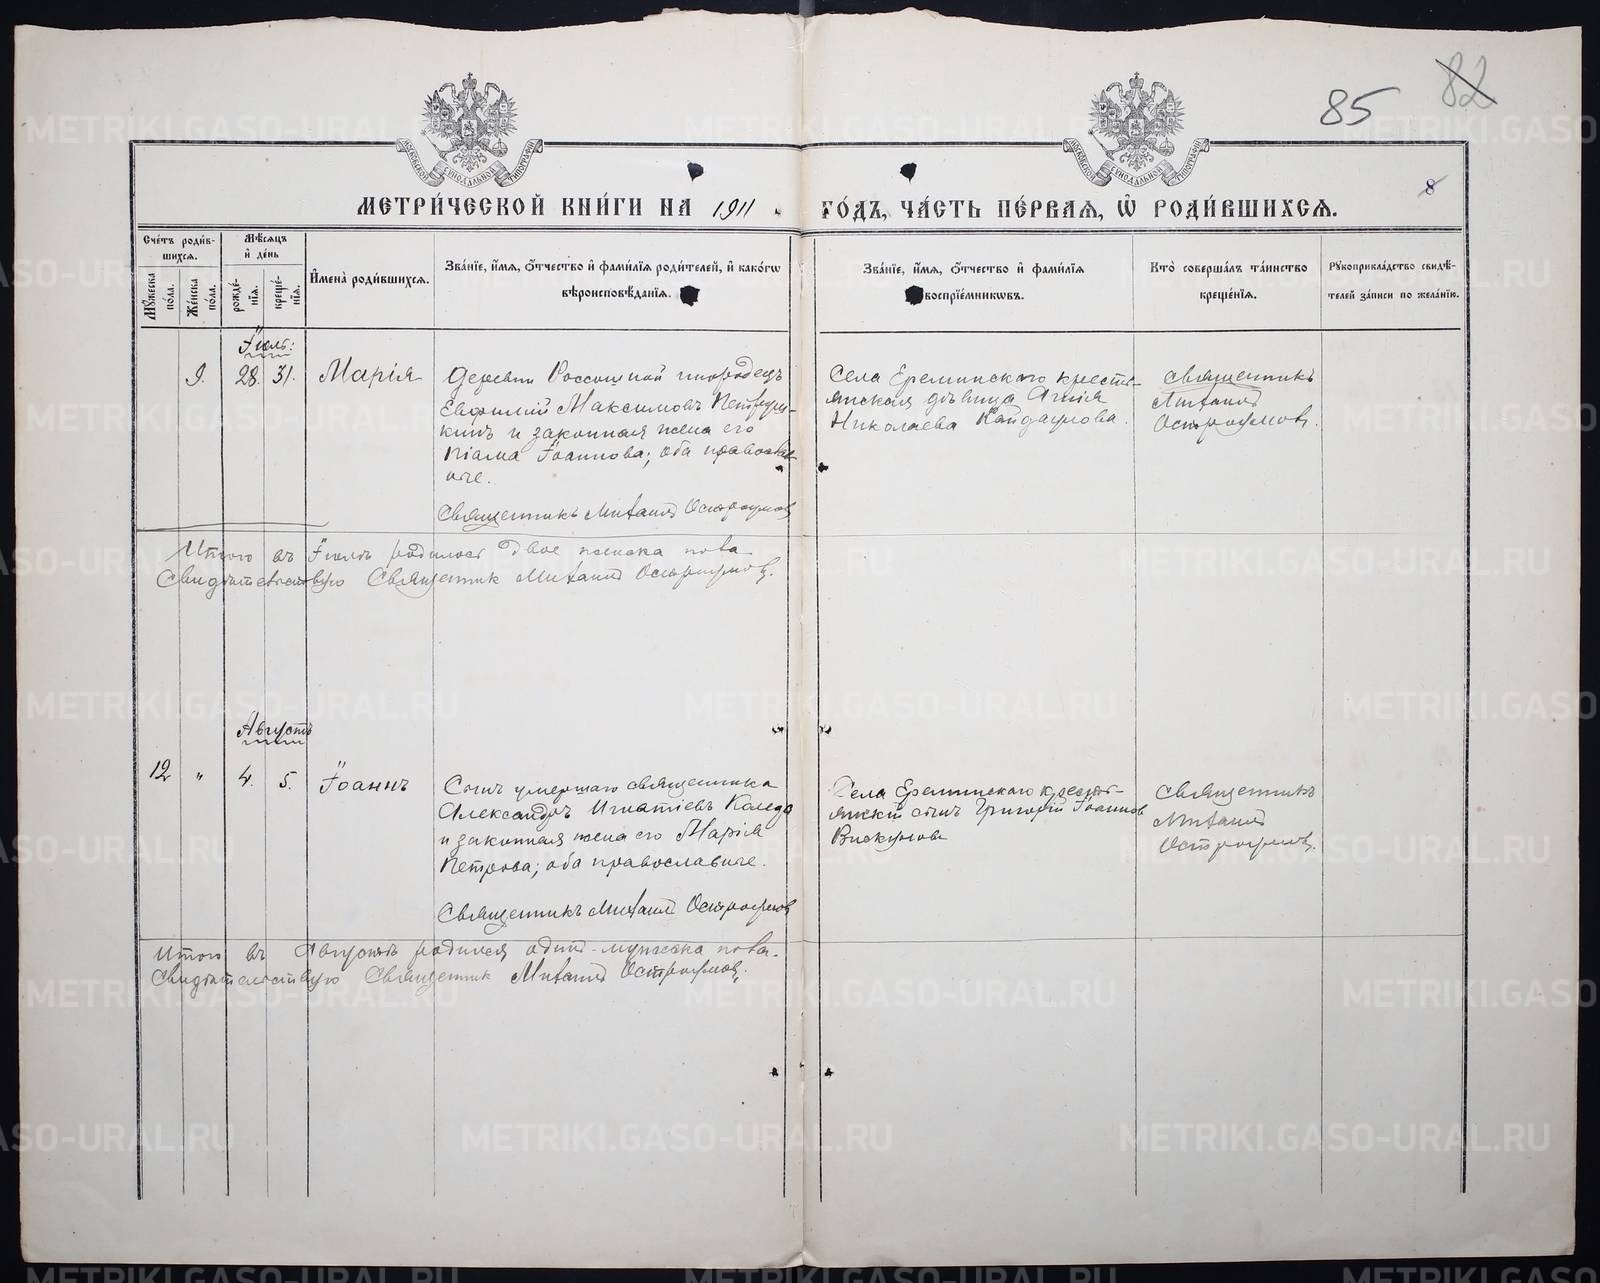 85 82
8
МОСКОВСКОЙ СѴНОДАЛЬНОЙ ТИПОГРАФІИ
МОСКОВСКОЙ СѴНОДАЛЬНОЙ ТИПОГРАФІИ
МЕТРИ́ЧЕСКОЙ КНИ́ГИ НА 1911 ГО́ДЪ, ЧА́СТЬ ПЕ́РВАѦ, Ѡ҆ РОДИ́ВШИХСѦ.
Сче́тъ роди́в-
шихсѧ.
Мꙋ́жеска по́ла.
Же́нска по́ла.
Мѣ́сѧцъ
и҆ де́нь
рожде́-
нїѧ.
креще́-
нїѧ.
И҆мена̀ роди́вшихсѧ.
Зва́нїе, и҆́мѧ, ѻ҆́тчество и҆ фами́лїѧ роди́телей, и҆ како́гѡ
вѣроисповѣ́данїѧ.
Зва́нїе, и҆́мѧ, ѻ҆́тчество и҆ фами́лїѧ
воспрїе́мникѡвъ.
Кто̀ соверша́лъ та́инство
креще́нїѧ.
Рꙋкоприкла́дство свидѣ́-
телей за́писи по жела́нїю.
Іюль:
9. 28. 31. Марія
Деревни Россошной инородецъ
Евфимій Максимовъ
кинъ и законная жена его
Піама Іоаннова; оба православ-
ные.
Священникъ Михаилъ Остроумовъ
Села Ереминского крестья-
янская дѣвица Агнія
Николаева Кайдаулова.
Священникъ
Михаилъ
Остроумовъ.
Итого въ Іюлѣ родилось двое женска пола
Свидѣтельствую Священник Михаилъ Остроумовъ.
Августъ
12 " 4. 5. Іоаннъ
Сынъ умершаго священника
Александръ Игнатіевъ
и законная жена его Марія
Петрова; оба православные.
Священникъ Михаилъ Остроумовъ
Села Ереминскаго кресть-
янскій сынъ Григорій Іоаннов
Вискунова
Священникъ
Михаилъ
Остроумовъ.
Итого въ Августѣ родился одинъ мужеска пола.
Свидѣтельствую Священник Михаилъ Остроумовъ.
METRIKI.GASO-URAL.RU